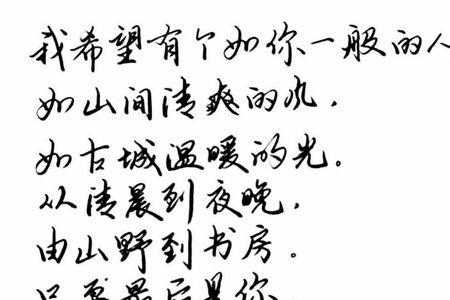 我希望有个如你一般的人
如山间清爽的风，
如古城温暖的光。
从清晨到夜晚，
由山野到书房。
只要最后是你，